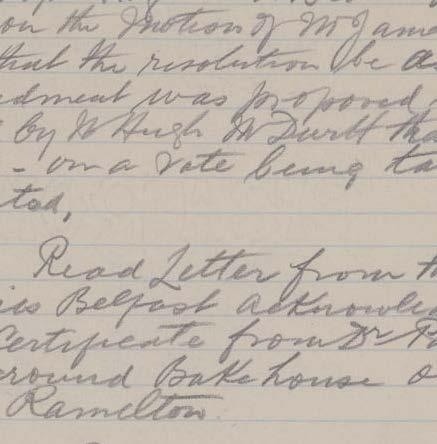 on the Motion of Mr Jame
that the resolution be a
edment was proposed
by Mr Hugh McDevitt tha
- on a vote being ta
ted,
Read Letter from th
ies Belfast acknowle
Certificate from Dr Pa
ground Bakehouse o
Ramelton.